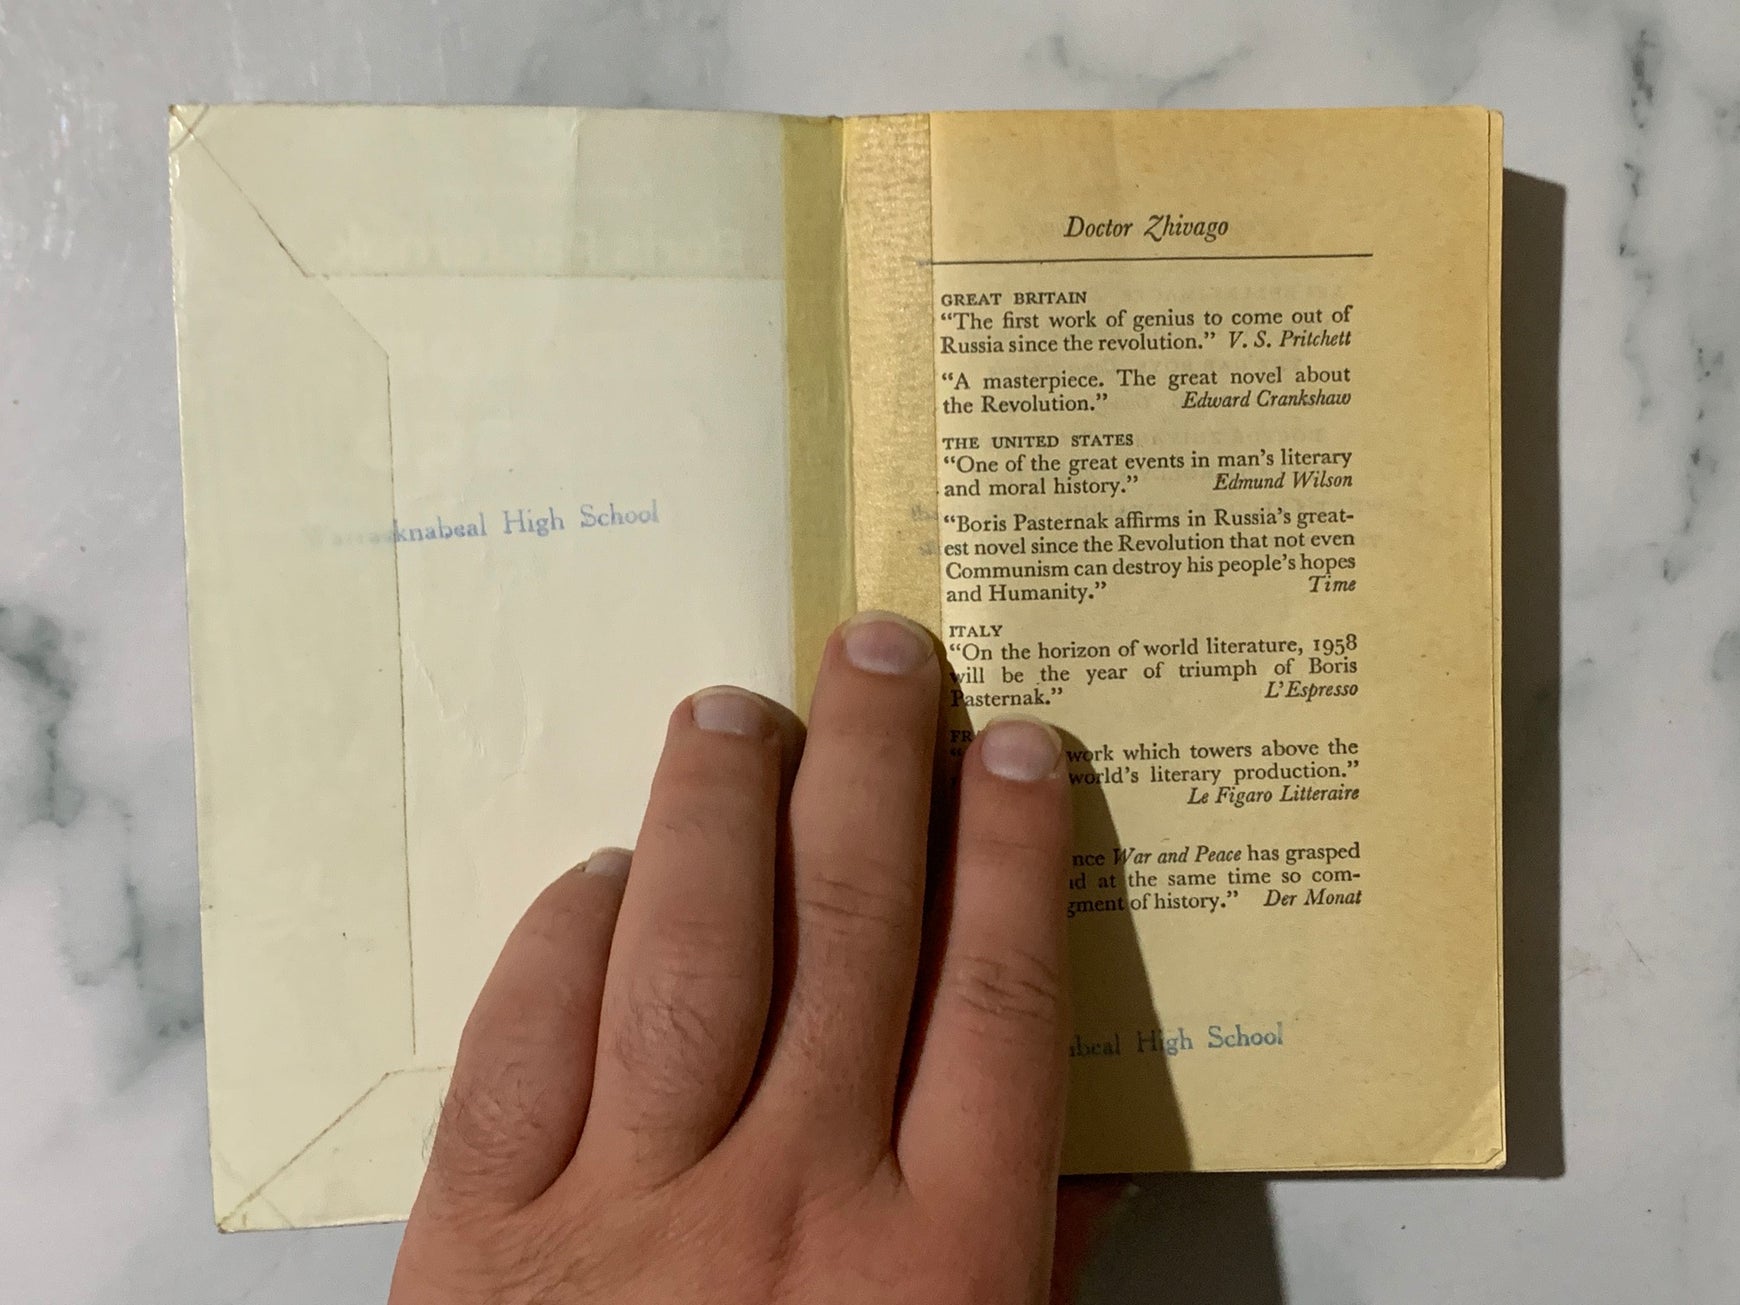 knabeal High School
Doctor Zhivago
GREAT BRITAIN
“The first work of genius to come out of
Russia since the revolution.” V. S. Pritchett
“A masterpiece. The great novel about
the Revolution.” Edward Crankshaw
THE UNITED STATES
“One of the great events in man’s literary
and moral history.” Edmund Wilson
“Boris Pasternak affirms in Russia’s great-
est novel since the Revolution that not even
Communism can destroy his people’s hopes
and Humanity.” Time
ITALY
“On the horizon of world literature, 1958
will be the year of triumph of Boris
Pasternak.” L’Espresso
work which towers above the
world’s literary production.”
Le Figaro Litteraire
War and Peace has grasped
at the same time so com-
of history.” Der Monat
High School